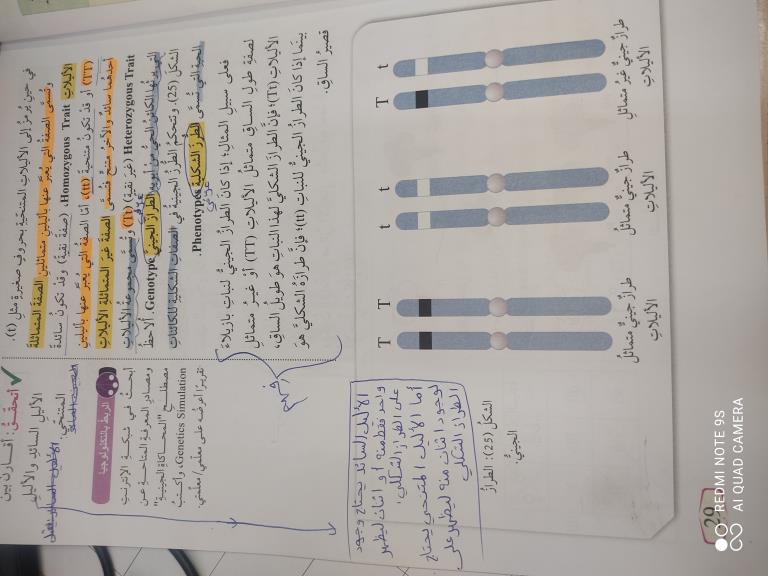 في حين يُرمزُ إلى الأليلاتِ المتنحّيةِ بحروفٍ صغيرةٍ مثلِ (t).
وتُسمّى الصفةُ التي يُعبَّرُ عنها بأليلينِ متماثلينِ الصفةَ المتماثلةَ
الأليلاتِ Homozygous Trait (صفةٌ نقيةٌ) وقد تكونُ سائدةً
(TT) أو قد تكونُ متنحيةً (tt)، أمّا الصفةُ التي يُعبَّرُ عنها بأليلينِ
أحدُهما سائدٌ والآخرُ متنحٍّ فتُسمّى الصفةَ غيرَ المتماثلةِ الأليلاتِ
Heterozygous Trait (غيرَ نقيةٍ) (Tt) وتُسمّى مجموعةُ الأليلاتِ
التي يرثُها الكائنُ الحيُّ من أبويهِ الطرازَ الجينيَّ Genotype. أُلاحظُ
الشكلَ (25). وتتحكمُ الطرزُ الجينيةُ في الصفاتِ الشكليةِ للكائناتِ
الحيةِ التي تُسمّى الطرزَ الشكليةَ Phenotypes.
فعلى سبيلِ المثالِ؛ إذا كانَ الطرازُ الجينيُّ لنباتِ بازيلاءَ
لصفةِ طولِ الساقِ متماثلَ الأليلاتِ (TT) أوْ غيرَ متماثلِ
الأليلاتِ (Tt)؛ فإنَّ الطرازَ الشكليَّ لهذا النباتِ هو طويلُ الساقِ،
بينما إذا كانَ الطرازُ الجينيُّ للنباتِ (tt)؛ فإنَّ طرازَهُ الشكليَّ هوَ
قصيرُ الساقِ.
✓ أتحقّقُ: أقارنُ بين
الأليلِ السائدِ والأليلِ
المتنحّي.
الربطُ بالتكنولوجيا
أبحثُ في شبكةِ الإنترنتِ
ومصادرِ المعرفةِ المتاحةِ عن
مصطلحِ "المحاكاةِ الجينيةِ"
Genetics Simulation، وأكتبُ
تقريرًا أعرضُهُ على معلّمي/ معلّمتي
الأليل السائد يحتاج وجود
واحد فقط منه أو اثنان ليظهر
على الطراز الشكلي،
أما الأليل المتنحي يحتاج
لوجود اثنان منه ليظهر على
الطراز الشكلي
T T
t t
T t
طرازٌ جينيٌّ متماثلُ
الأليلاتِ
طرازٌ جينيٌّ متماثلُ
الأليلاتِ
طرازٌ جينيٌّ غيرُ متماثلِ
الأليلاتِ
الشكلُ (25): الطرازُ
الجينيُّ.
29
REDMI NOTE 9S
AI QUAD CAMERA